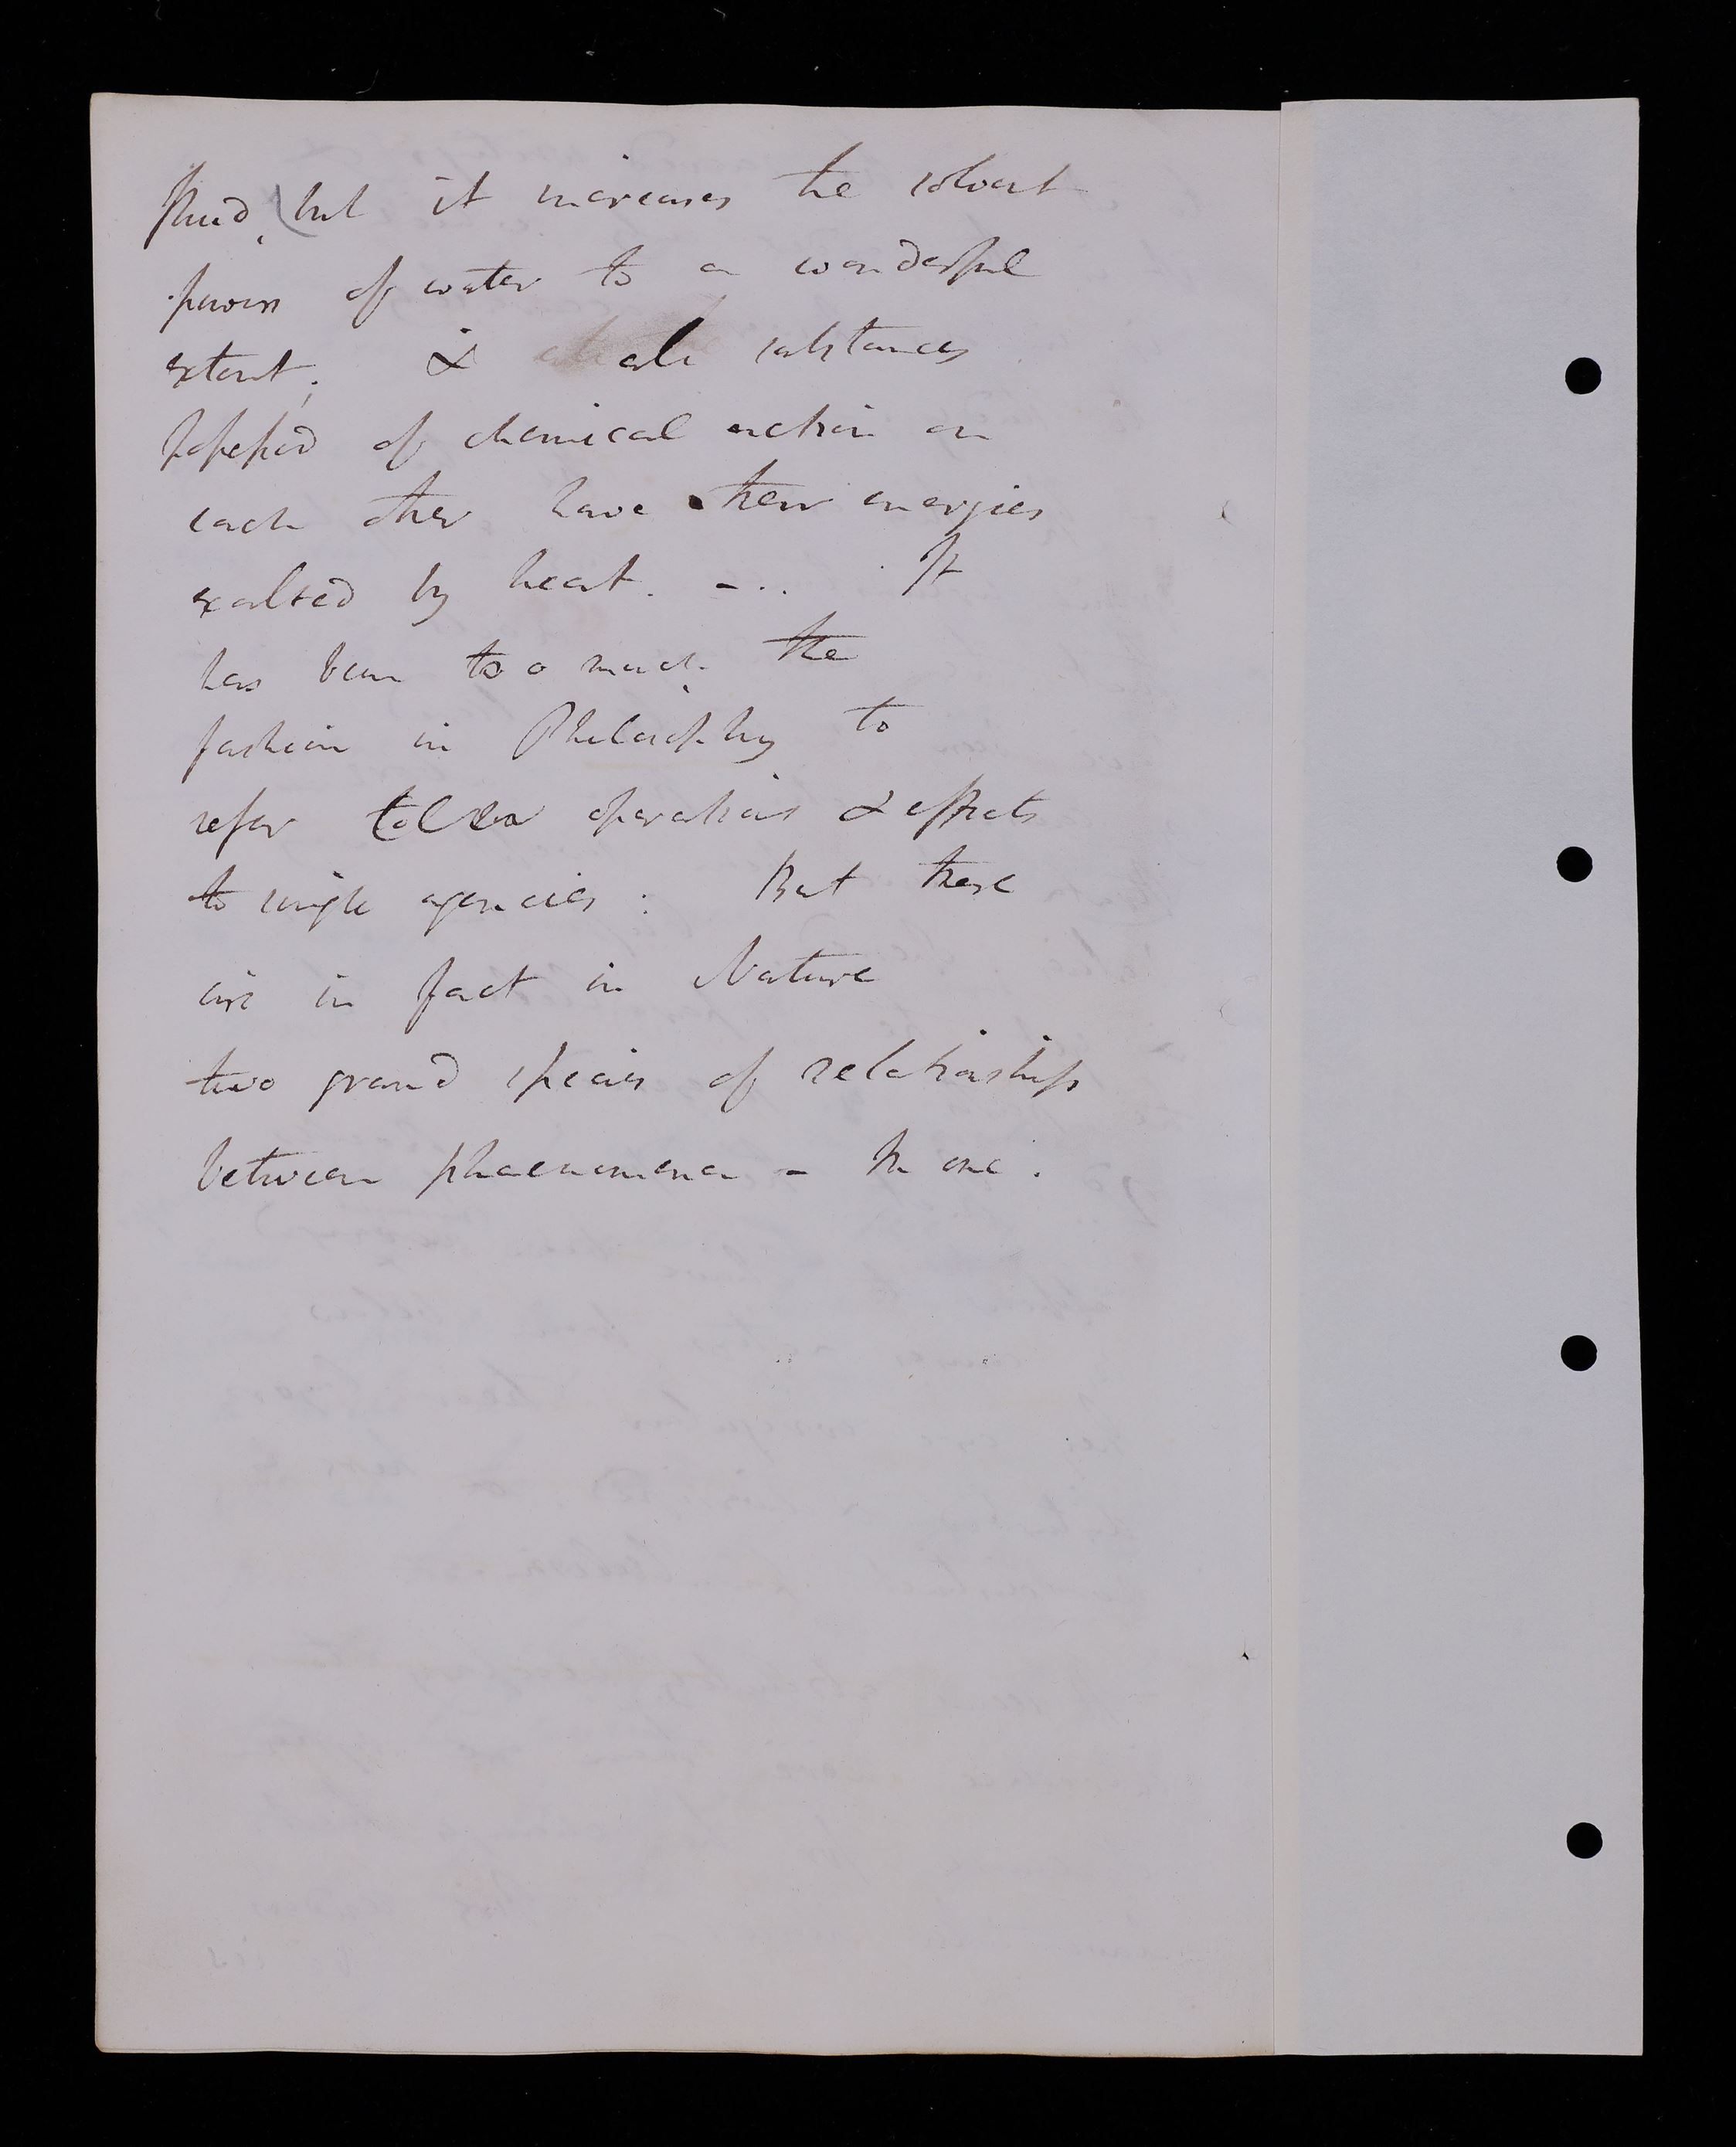 fluid, (but it increases the solvent
powers of water to a wonderful
extent; & all substances
possessed of chemical action on
each other have their energies
exalted by heat. - .. It
has been too much the
fashion in Philosophy to
refer operations & effects
to single agencies: But there
are in fact in Nature
two grand species of relationships
between phaenomena - In one.